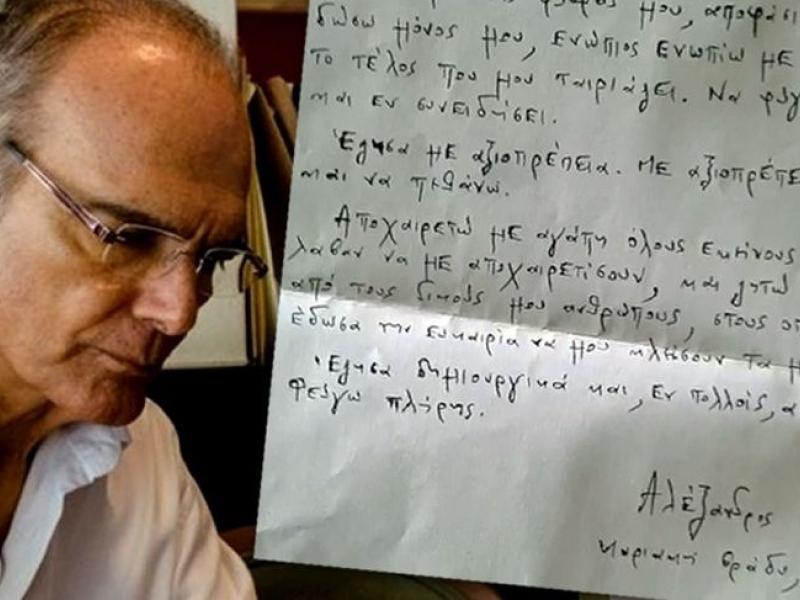 μου, αποφάσι
δώσω μόνος μου, ενώπιος ενωπίω με
το τέλος που μου ταιριάζει. Να φύγ
και εν συνειδήσει.
Έζησα με αξιοπρέπεια. Με αξιοπρέπε
και να πεθάνω.
Αποχαιρετώ με αγάπη όλους εκείνους
λαβαν να με αποχαιρετίσουν, και ζητώ
από τους δικούς μου ανθρώπους, στους οπ
έδωσα την ευκαιρία να μου κλείσουν τα μ
Έζησα δημιουργικά και, εν πολλοίς, α
Φεύγω πλήρης.
Αλέξανδρος
Κυριακή βράδυ,